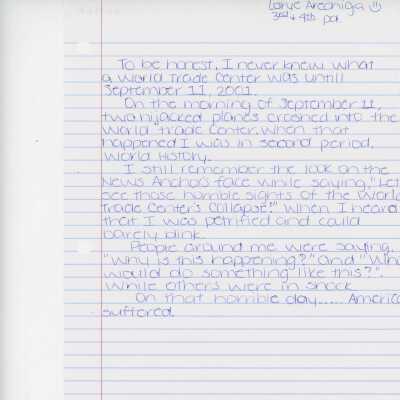 Larue Arechiga ☺
3rd + 4th pd.
To be honest, I never knew what
a World Trade Center was untill
September 11, 2001.
On the morning of September 11,
two hijacked planes crashed into the
World Trade Center. When that
happened I was in second period,
World History.
I still remember the look on the
News Anchors face while saying, "Let
see those horrible sights of the World
Trade Center's Collapse!" When I heard
that I was petrified and could
barely blink.
People around me were saying,
"Why is this happening?" and "Who
would do something like this?".
While others were in shock.
On that horrible day..... America
suffered.